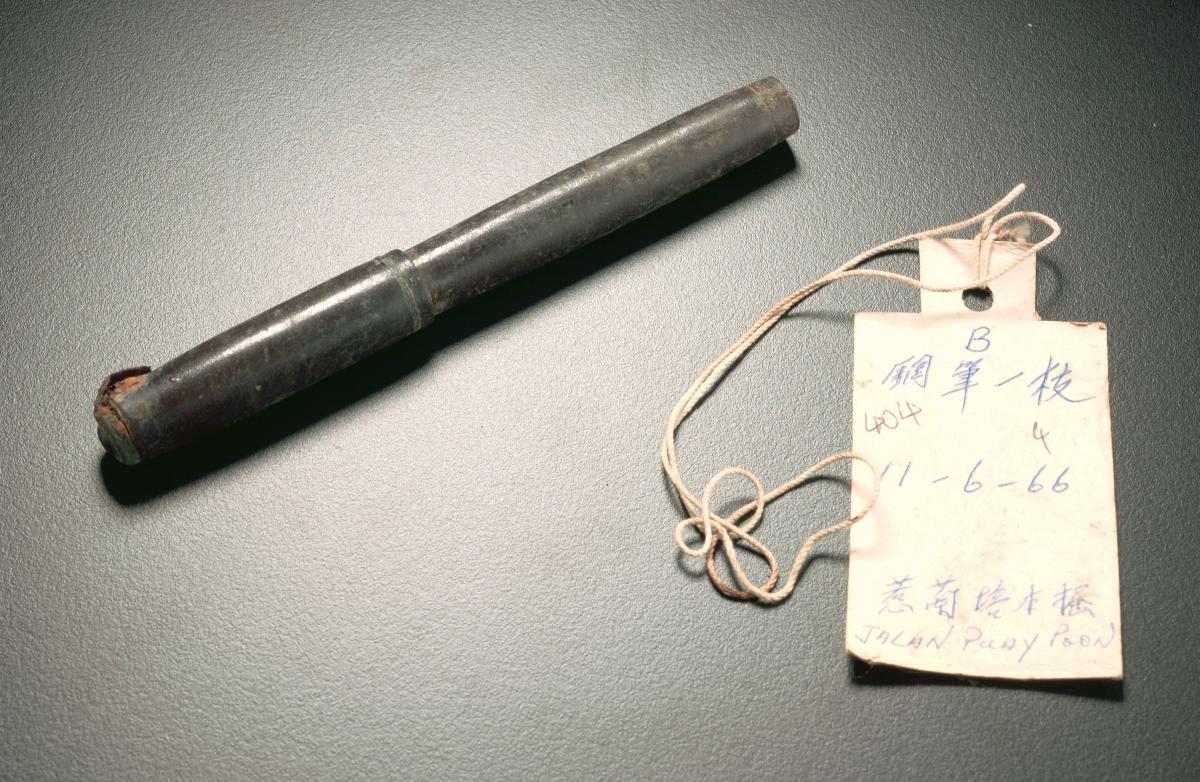 B
鋼筆一枝
404
4
11-6-66
惹蘭培本掘
JALAN PUAY POON